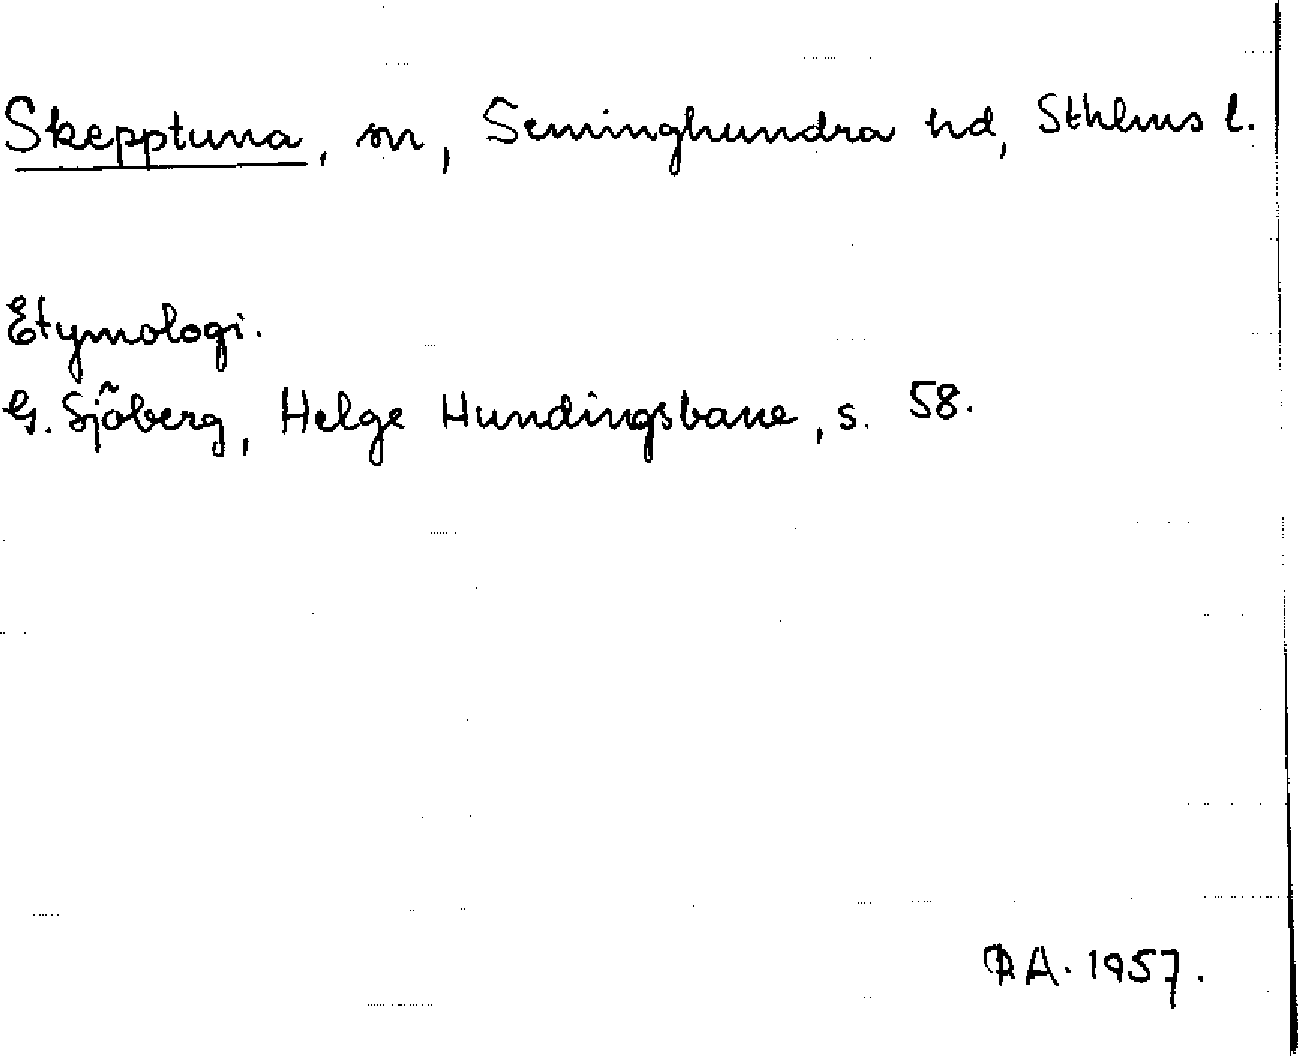 Skepptuna, sn, Seminghundra hd, Sthlms l.
Etymologi.
G. Sjöberg, Helge Hundingsbane, s. 58.
RA. 1957.